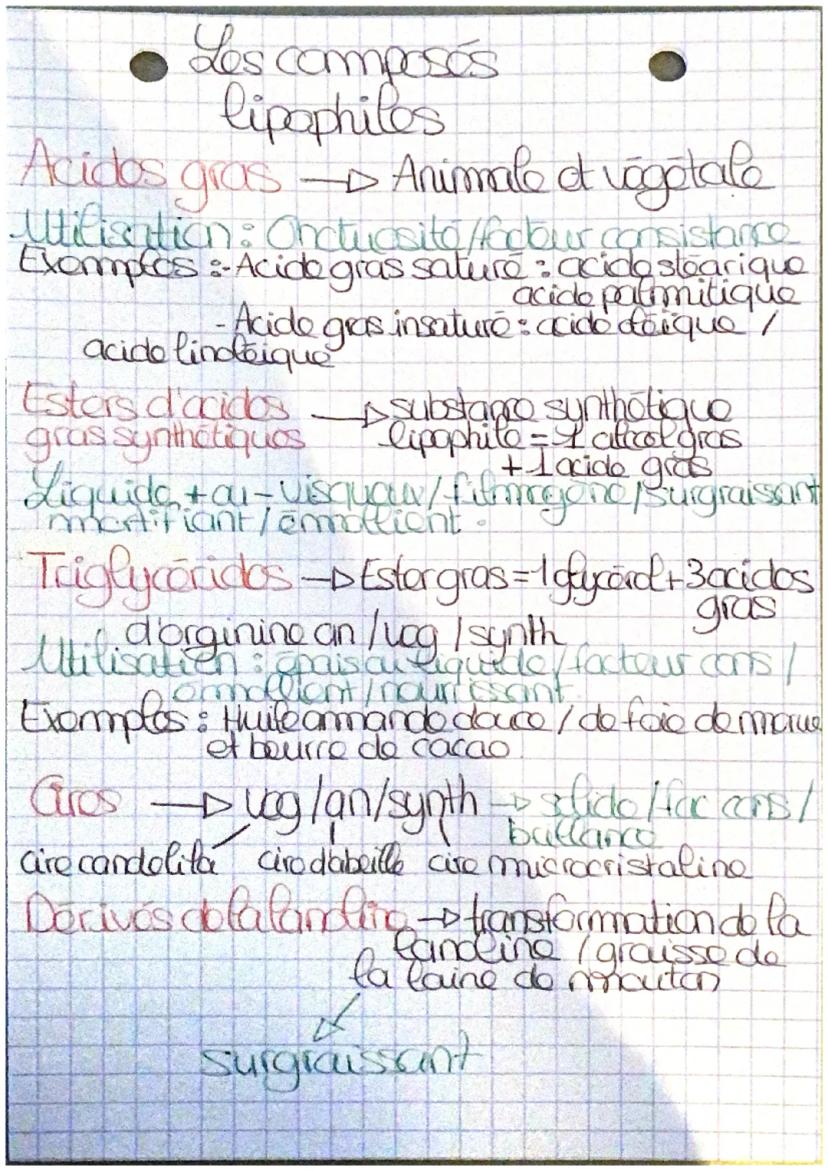 Les composés
lipophiles
Acides gras → Animale et végétale
Utilisation : Onctuosité/facteur consistance
Exemples :- Acide gras saturé : acide stéarique
acide palmitique
- Acide gras insaturé : acide oléique /
acide linoléique
Esters d'acides → substance synthétique
gras synthétiques lipophile = 1 alcool gras
+ 1 acide gras
Liquide + ou - visqueux/filmogène/surgraissant
matifiant/émollient.
Triglycérides → Ester gras = 1 glycérol + 3 acides
gras
d'orginine an/veg/synth
Utilisation : épais ou liquide/facteur cons/
émollient/nourrissant
Exemples : Huile amande douce / de foie de morue
et beurre de cacao
Cires → veg/an/synth → solide/fac cons/
brillance
cire candelila cire d'abeille cire microcristaline
Dérivés de la lanoline → transformation de la
lanoline / graisse de
la laine de mouton
surgraissant